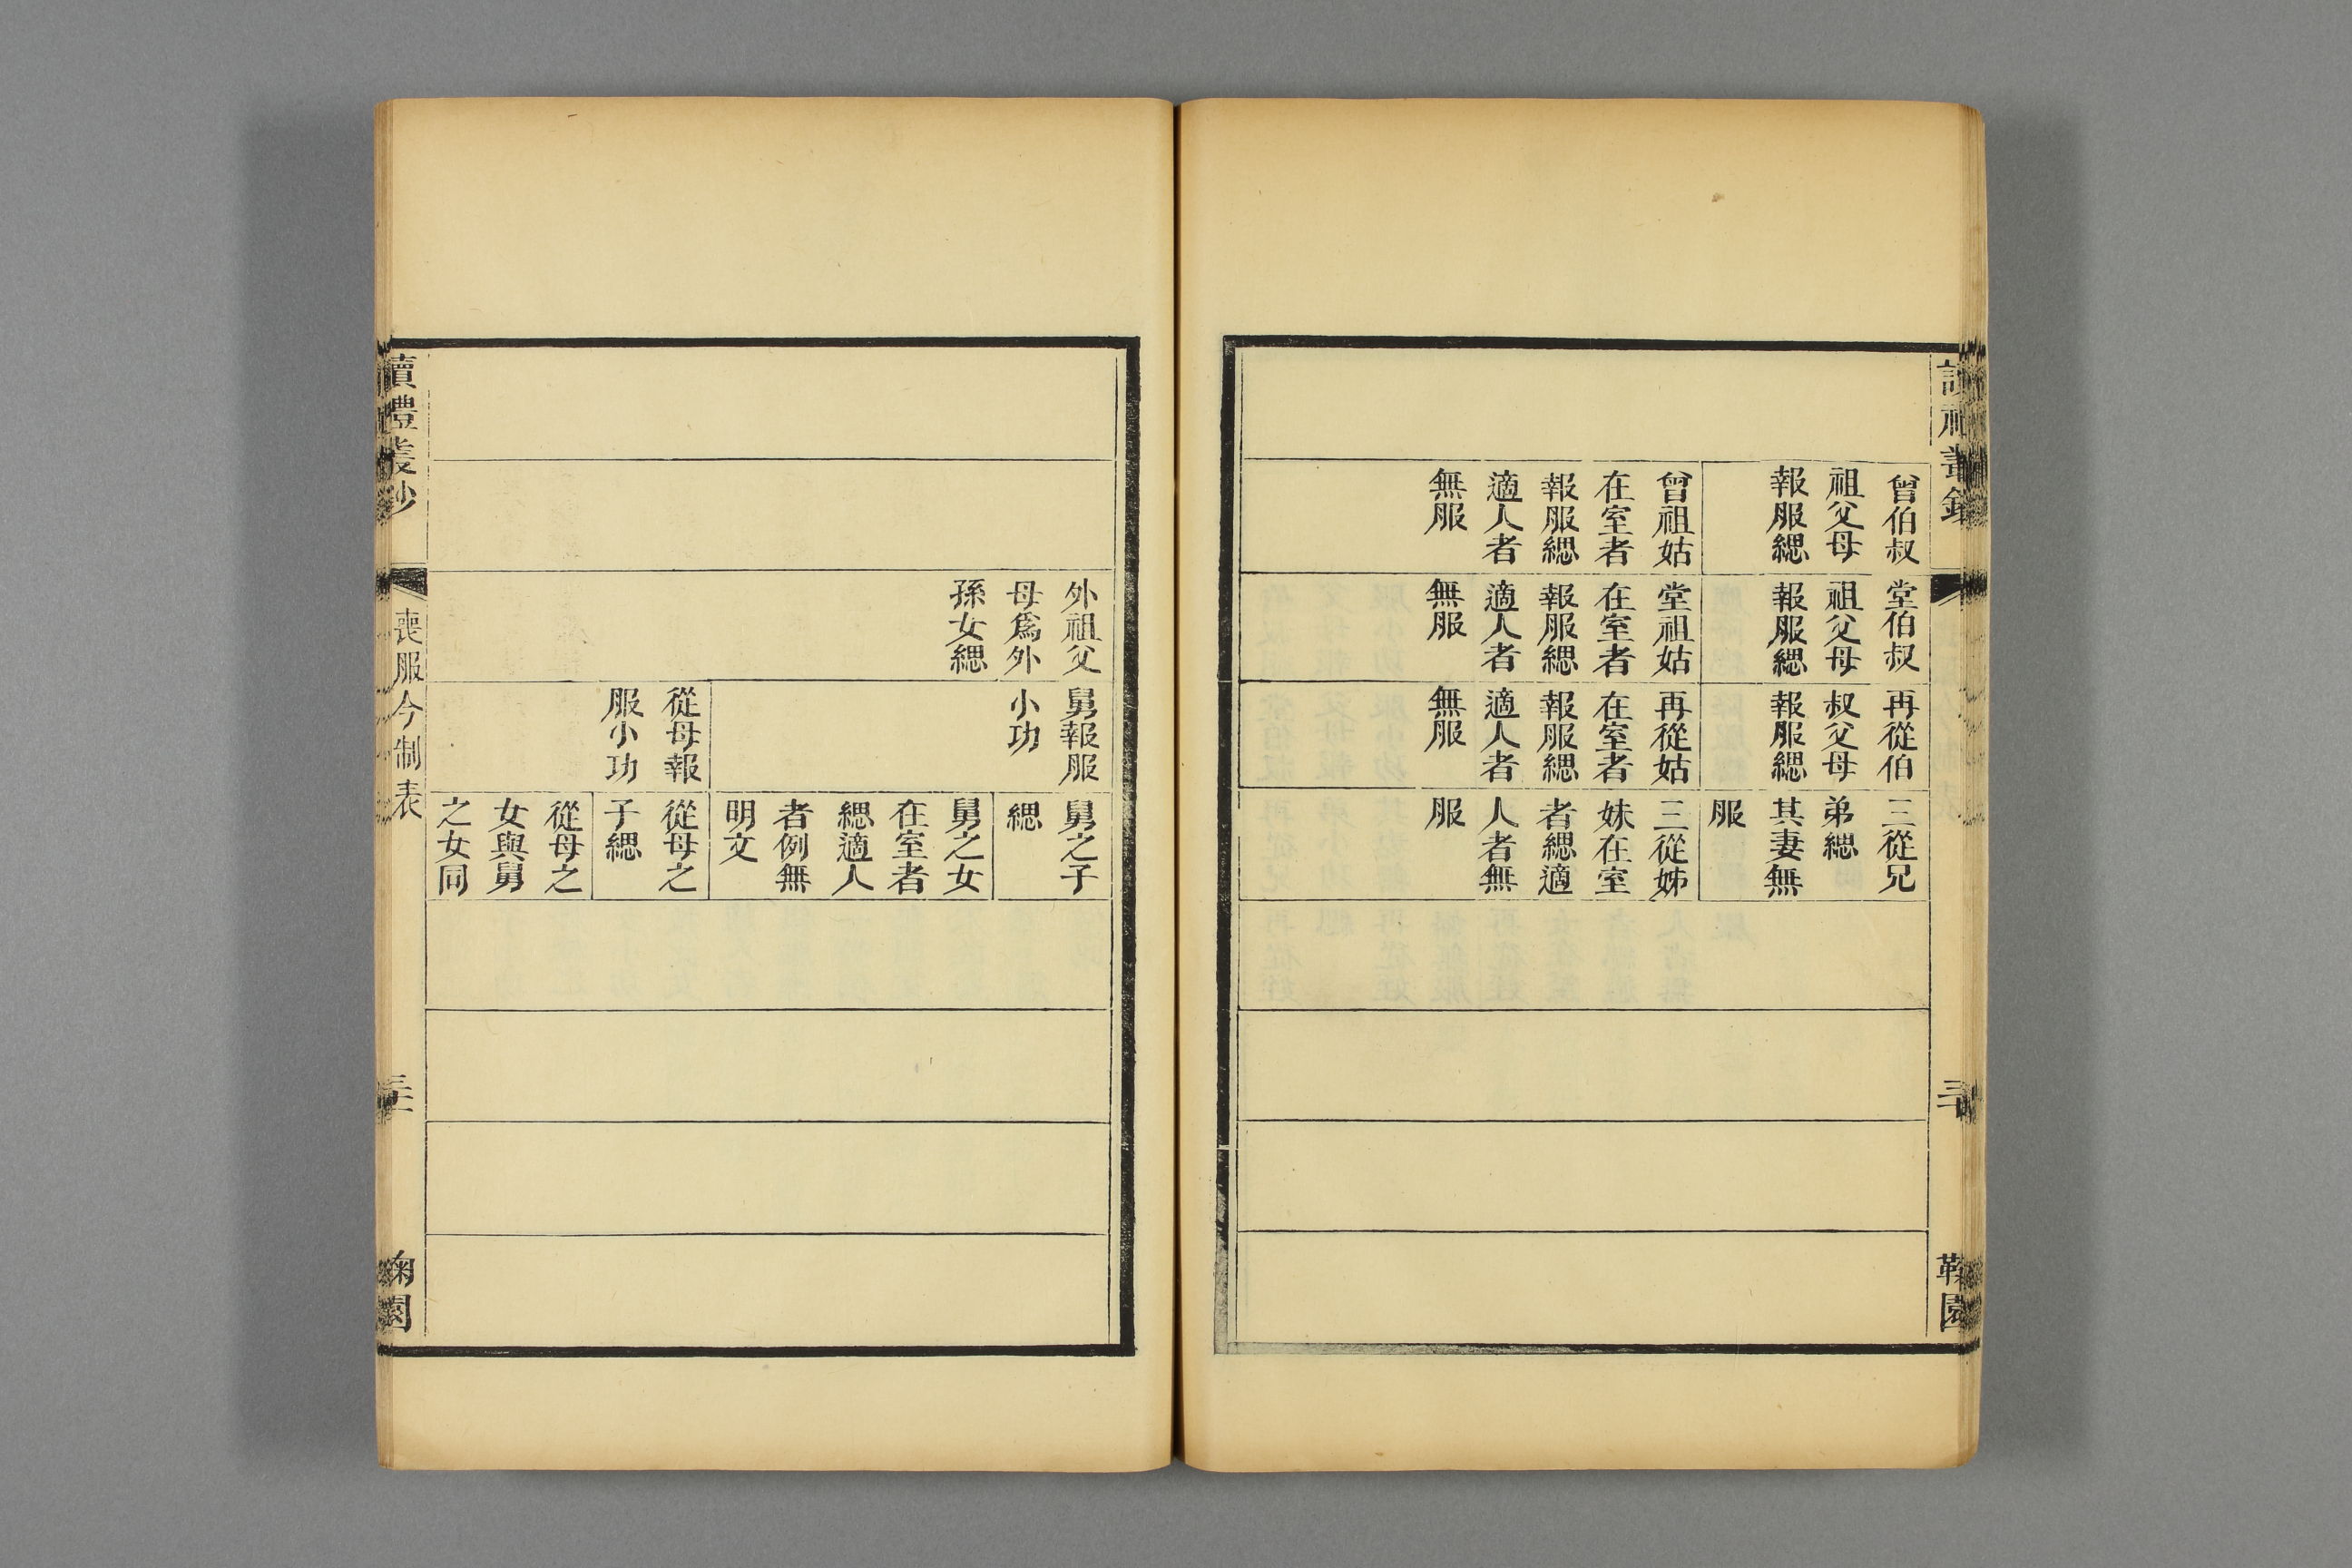 曾伯叔
祖父母
報服緦
曾祖姑
在室者
報服緦
適人者
無服
堂伯叔
祖父母
報服緦
堂祖姑
在室者
報服緦
適人者
無服
再從伯
叔父母
報服緦
再從姑
在室者
報服緦
適人者
無服
三從兄
弟緦
其妻無
服
三從姊
妹在室
者緦適
人者無
服
鞠園
外祖父
母爲外
孫女緦
舅報服
小功
從母報
服小功
舅之子
緦
舅之女
在室者
緦適人
者例無
明文
從母之
子緦
從母之
女與舅
之女同
讀禮叢鈔
喪服今制表
鞠園